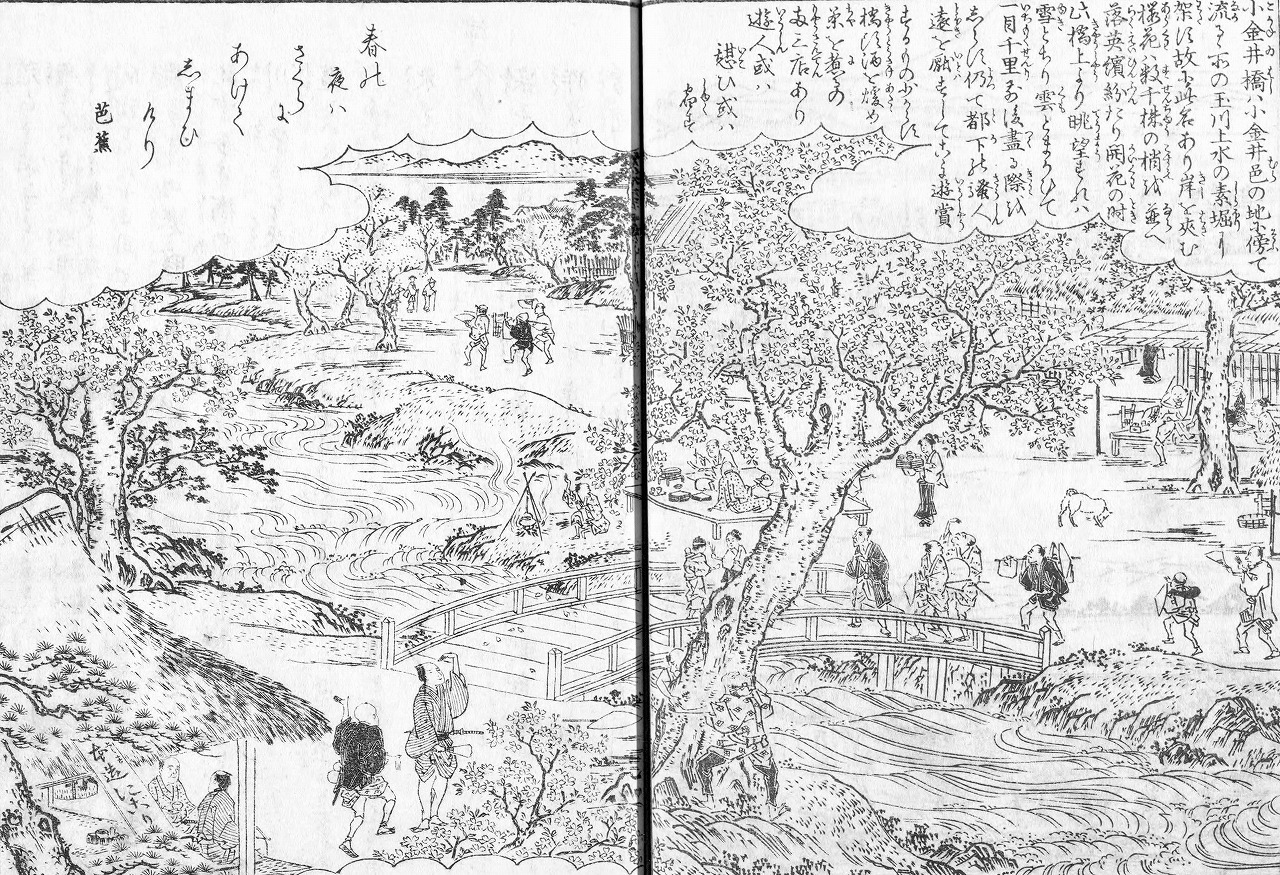 小金井橋ハ小金井邑の地に傍て
流るゝ所の玉川上水の素堀に
架す故に此名あり岸を夾む
桜花ハ数千株の梢を並へ
落英繽紛たり開花の時
此橋上より眺望すれハ
雪とちり雲とまかひて
一目千里前後盡る際を
しらす仍て都下の騒人
遠を厭すしてこゝに遊賞
するもの少からす
橋頭酒を煖め
茶を煮るの
両三店あり
遊人或ハ
憩ひ或ハ
宿す
春の
夜ハ
さくらに
あけて
しまひ
けり
芭蕉